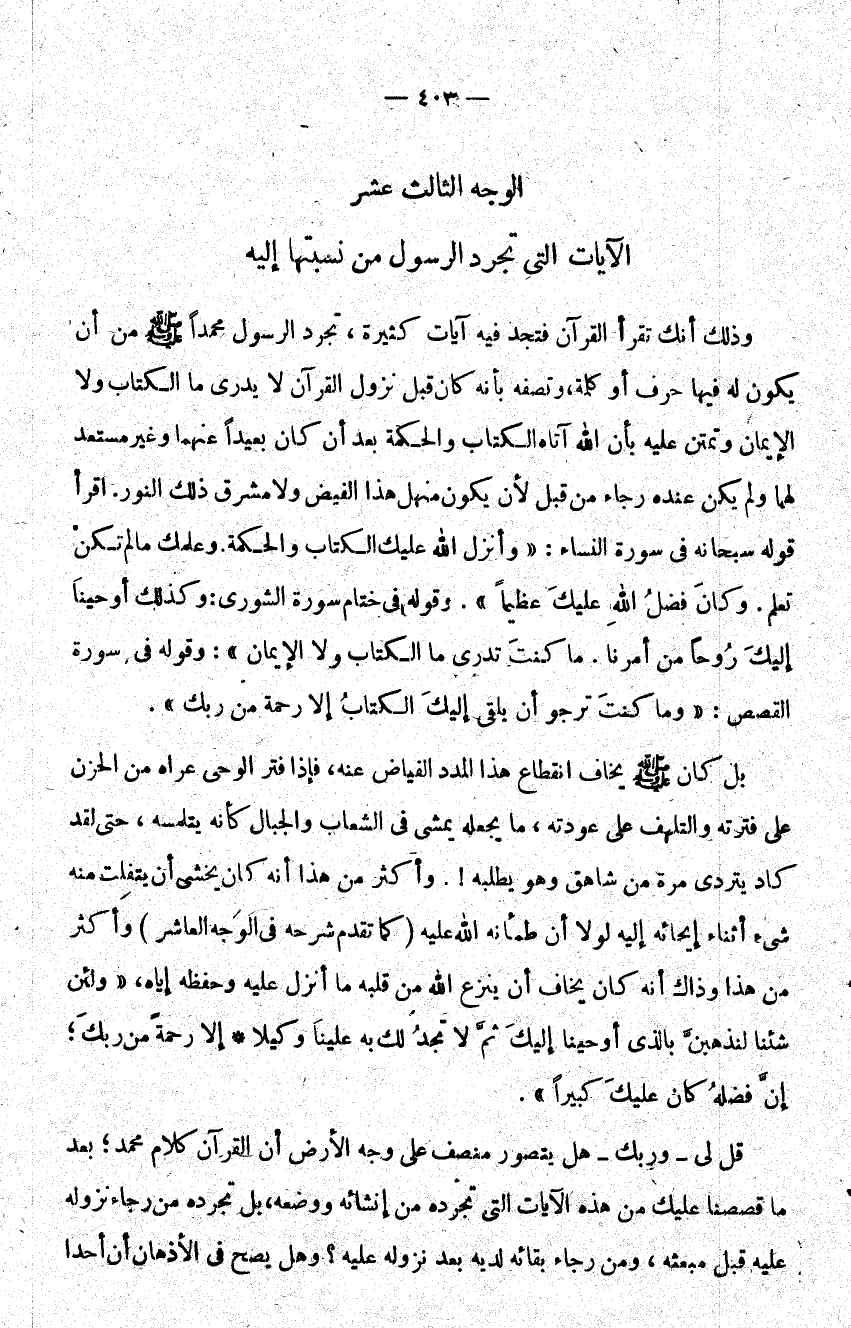 — ٤٠٣ —
الوجه الثالث عشر
الآيات التي تجرد الرسول من نسبتها إليه
وذلك أنك تقرأ القرآن فتجد فيه آيات كثيرة ، تجرد الرسول محمداً ﷺ من أن
يكون له فيها حرف أو كلمة، وتصفه بأنه كان قبل نزول القرآن لا يدرى ما الكتاب ولا
الإيمان وتمتن عليه بأن الله آتاه الكتاب والحكمة بعد أن كان بعيداً عنهما وغير مستعد
لهما ولم يكن عنده رجاء من قبل لأن يكون منهل هذا الفيض ولا مشرق ذلك النور. اقرأ
قوله سبحانه فى سورة النساء : « وأنزل الله عليك الكتاب والحكمة. وعلمك مالم تكنْ
تعلم . وكانَ فضلُ اللهِ عليكَ عظيماً » . وقوله فى ختام سورة الشورى: وكذلك أوحيناَ
إليكَ رُوحاً من أمرنا . ما كنتَ تدرِى ما الكتاب ولا الإيمان » : وقوله فى سورة
القصص : « وما كنتَ ترجو أن يلقى إليكَ الكتابُ إلا رحمة من ربك » .
بل كان ﷺ يخاف انقطاع هذا المدد الفياض عنه، فإذا فتر الوحى عراه من الحزن
على فترته والتلهف على عودته ، ما يجعله يمشى فى الشعاب والجبال كأنه يتلمسه ، حتى لقد
كاد يتردى مرة من شاهق وهو يطلبه ! . وأكثر من هذا أنه كان يخشى أن يتفلت منه
شىء أثناء إيحائه إليه لولا أن طمأنه الله عليه ( كما تقدم شرحه فى الوجه العاشر ) وأكثر
من هذا وذاك أنه كان يخاف أن ينزع الله من قلبه ما أنزل عليه وحفظه إياه، « ولئن
شئنا لنذهبنَّ بالذى أوحينا إليكَ ثمَّ لا تجدُ لك به علينَا وكيلا * إلا رحمةً من ربكَ ؛
إنَّ فضلهُ كان عليكَ كبيراً » .
قل لى ـ وربك ـ هل يتصور منصف على وجه الأرض أن القرآن كلام محمد ؛ بعد
ما قصصنا عليك من هذه الآيات التى تجرّده من إنشائه ووضعه، بل تجرده من رجاء نزوله
عليه قبل مبعثه ، ومن رجاء بقائه لديه بعد نزوله عليه ؟ وهل يصح فى الأذهان أن أحدا